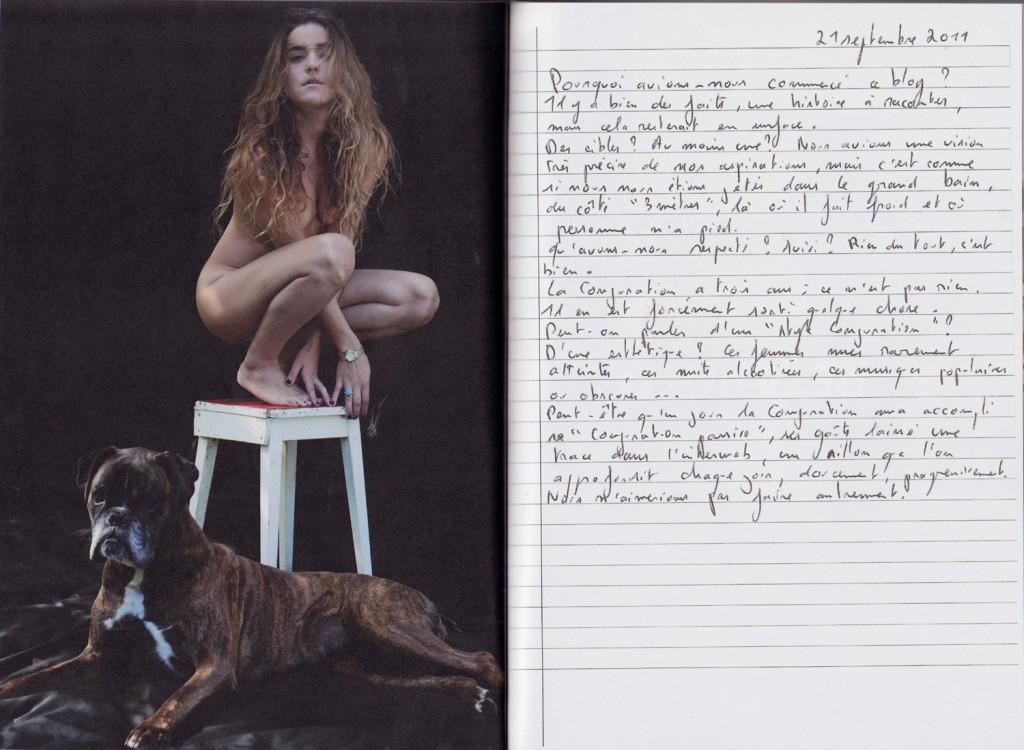 21 septembre 2011
Pourquoi avions-nous commencé ce blog ?
Il y a bien des faits, une histoire à raconter,
mais cela resterait en surface.
Des cibles ? Au moins une ? Nous avions une vision
très précise de nos aspirations, mais c'est comme
si nous nous étions jetés dans le grand bain,
du côté "3 mètres", là où il fait froid et où
personne n'a pied.
Qu'avons-nous respecté ? Suivi ? Rien du tout, c'est
bien.
La Conjuration a trois ans ; ce n'est pas rien.
Il en est forcément sorti quelque chose.
Peut-on parler d'un "style Conjuration" ?
D'une esthétique ? Ces femmes nues rarement
atteintes, ces nuits alcoolisées, ces musiques populaires
ou obscures ...
Peut-être qu'un jour la Conjuration aura accompli
sa "Conjuration passive", ses goûts laissé une
trace dans l'interweb, un sillon que l'on
approfondit chaque jour, doucement, progressivement.
Nous n'aimerions pas faire autrement.